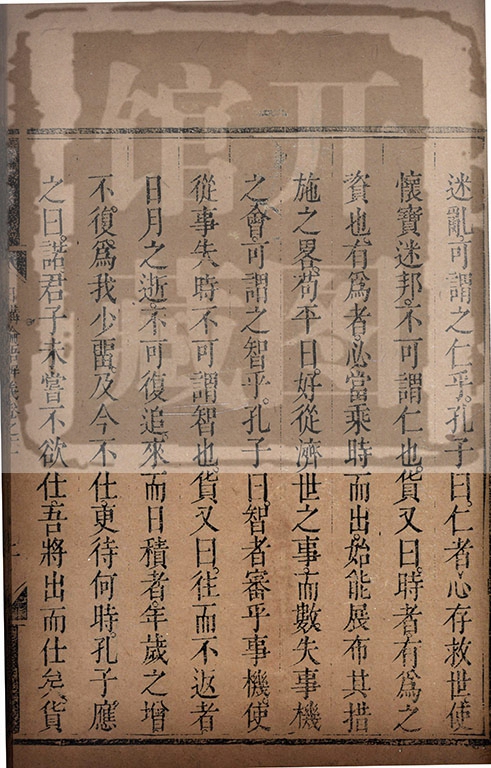 迷亂可謂之仁乎孔子曰仁者心存救世使
懷寶迷邦不可謂仁也貨又曰時者有爲之
資也有爲者必當乘時而出始能展布其措
施之畧苟平日好從濟世之事而數失事機
之會可謂之智乎孔子曰智者審乎事機使
從事失時不可謂智也貨又曰往而不返者
日月之逝不可復追來而日積者年歲之增
不復爲我少畱及今不仕更待何時孔子應
之曰諾君子未嘗不欲仕吾將出而仕矣貨